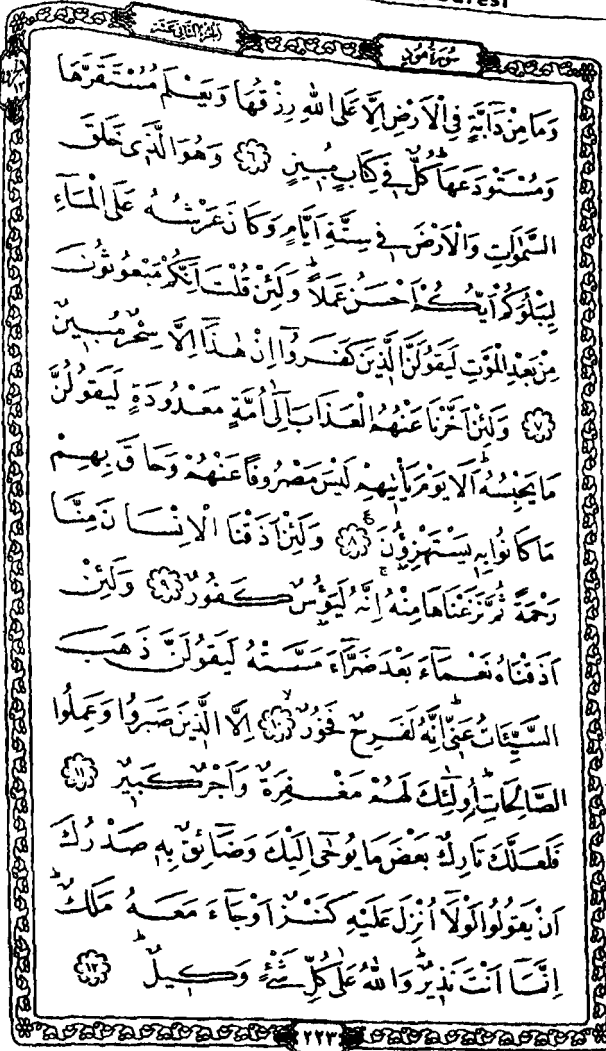 الجزء الثاني عشر
سورة هود
وَمَا مِنْ دَٓابَّةٍ فِي الْاَرْضِ اِلَّا عَلَى اللّٰهِ رِزْقُهَا وَيَعْلَمُ مُسْتَقَرَّهَا
وَمُسْتَوْدَعَهَاۜ كُلٌّ ف۪ي كِتَابٍ مُب۪ينٍ ﴿٦﴾ وَهُوَ الَّذ۪ي خَلَقَ
السَّمٰوَاتِ وَالْاَرْضَ ف۪ي سِتَّةِ اَيَّامٍ وَكَانَ عَرْشُهُ عَلَى الْمَٓاءِ
لِيَبْلُوَكُمْ اَيُّكُمْ اَحْسَنُ عَمَلًاۜ وَلَئِنْ قُلْتَ اِنَّكُمْ مَبْعُوثُونَ
مِنْ بَعْدِ الْمَوْتِ لَيَقُولَنَّ الَّذ۪ينَ كَفَرُٓوا اِنْ هٰذَٓا اِلَّا سِحْرٌ مُب۪ينٌ
﴿٧﴾ وَلَئِنْ اَخَّرْنَا عَنْهُمُ الْعَذَابَ اِلٰٓى اُمَّةٍ مَعْدُودَةٍ لَيَقُولُنَّ
مَا يَحْبِسُهُۜ اَلَا يَوْمَ يَأْت۪يهِمْ لَيْسَ مَصْرُوفًا عَنْهُمْ وَحَاقَ بِهِمْ
مَا كَانُوا بِه۪ يَسْتَهْزِؤُ۫نَ۟ ﴿٨﴾ وَلَئِنْ اَذَقْنَا الْاِنْسَانَ مِنَّا
رَحْمَةً ثُمَّ نَزَعْنَاهَا مِنْهُۚ اِنَّهُ لَيَؤُ۫سٌ كَفُورٌ ﴿٩﴾ وَلَئِنْ
اَذَقْنَاهُ نَعْمَٓاءَ بَعْدَ ضَرَّٓاءَ مَسَّتْهُ لَيَقُولَنَّ ذَهَبَ
السَّيِّـَٔاتُ عَنّ۪يۜ اِنَّهُ لَفَرِحٌ فَخُورٌۙ ﴿١٠﴾ اِلَّا الَّذ۪ينَ صَبَرُوا وَعَمِلُوا
الصَّالِحَاتِۜ اُو۬لٰٓئِكَ لَهُمْ مَغْفِرَةٌ وَاَجْرٌ كَب۪يرٌ ﴿١١﴾
فَلَعَلَّكَ تَارِكٌ بَعْضَ مَا يُوحٰٓى اِلَيْكَ وَضَٓائِقٌ بِه۪ صَدْرُكَ
اَنْ يَقُولُوا لَوْلَٓا اُنْزِلَ عَلَيْهِ كَنْزٌ اَوْ جَٓاءَ مَعَهُ مَلَكٌۜ
اِنَّمَٓا اَنْتَ نَذ۪يرٌۜ وَاللّٰهُ عَلٰى كُلِّ شَيْءٍ وَك۪يلٌۜ ﴿١٢﴾
٢٢٣